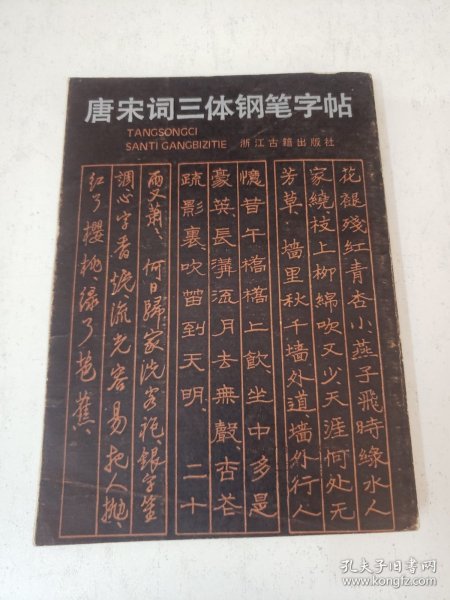 唐宋词三体钢笔字帖
TANGSONGCI
SANTI GANGBIZITIE 浙江古籍出版社
花褪残红青杏小、燕子飛時、綠水人
家繞、枝上柳綿吹又少、天涯何处无
芳草、墙里秋千墙外道、墙外行人
憶昔午橋橋上飲、坐中多是
豪英、長溝流月去無聲、杏花
疏影裏、吹笛到天明、二十
雨又萧、何日歸家洗客袍、銀字笙
調心字香燒、流光容易把人抛、
红了櫻桃、緑了芭蕉、
孔夫子旧书网
www.kongfz.com